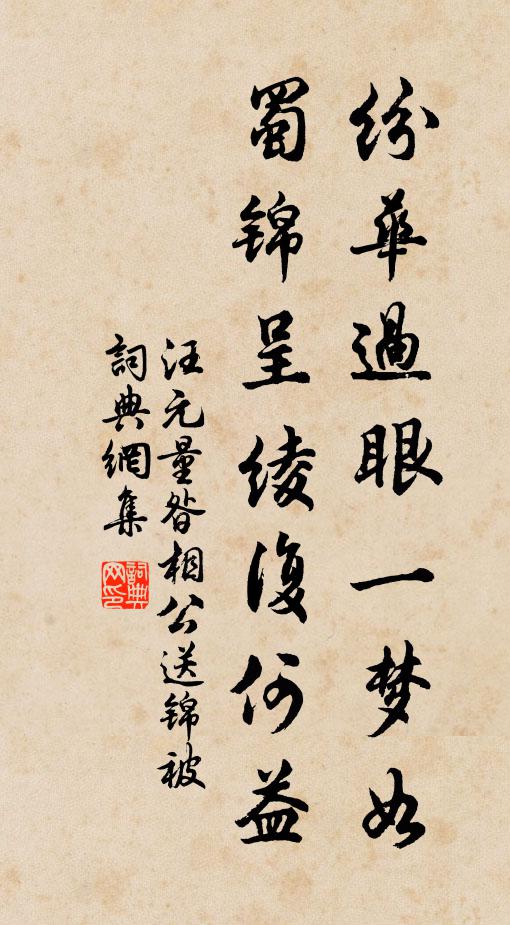 紛華過眼一梦如
蜀锦呈綾復何益
汪元量昝相公送锦被
詞典網集
詞典网印